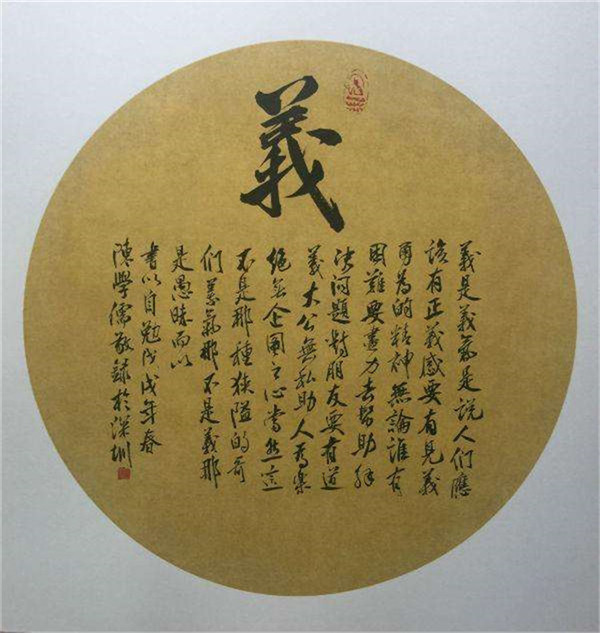 義
義是義氣是說人們應
該有正義感要有見義
勇為的精神無論誰有
困難要盡力去幫助解
決問題對朋友要有道
義大公無私助人為樂
絕無企圖之心當然這
不是那種狹隘的哥
們義氣那不是義那
是愚昧而以
書以自勉戊戌年春
陳學儒敬錄於深圳